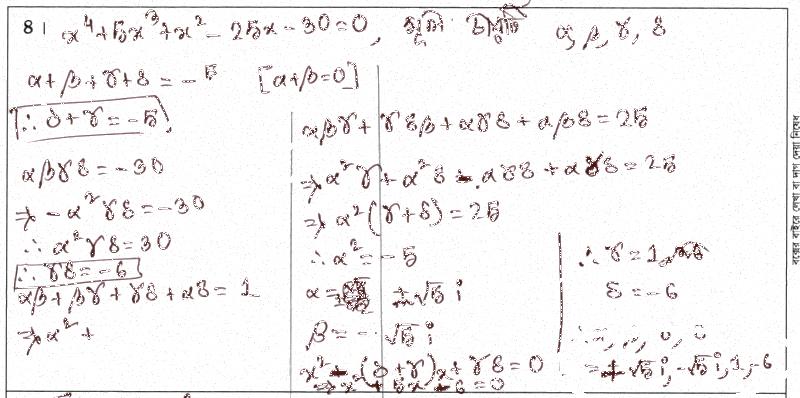 8। x⁴+5x³+x²-25x-30=0, α, β, γ, δ
α+β+γ+δ = -5 [α+β=0]
∴ δ+γ = -5
αβγδ = -30
⇒ -α²γδ = -30
∴ α²γδ = 30
∴ γδ = -6
αβ+βγ+γδ+αδ = 1
⇒ α² +
αβγ + γδβ + αγδ + αβδ = 25
⇒ α²γ + α²δ - αγδ + αγδ = 25
⇒ α²(γ+δ) = 25
∴ α² = -5
α = ±√5 i
β = -√5 i
x² - (δ+γ)x + γδ = 0
⇒ x² + 5x - 6 = 0
∴ γ = 1
δ = -6
= +√5 i, -√5 i, 1, -6
বক্সের বাইরে লেখা বা দাগ দেয়া নিষেধ